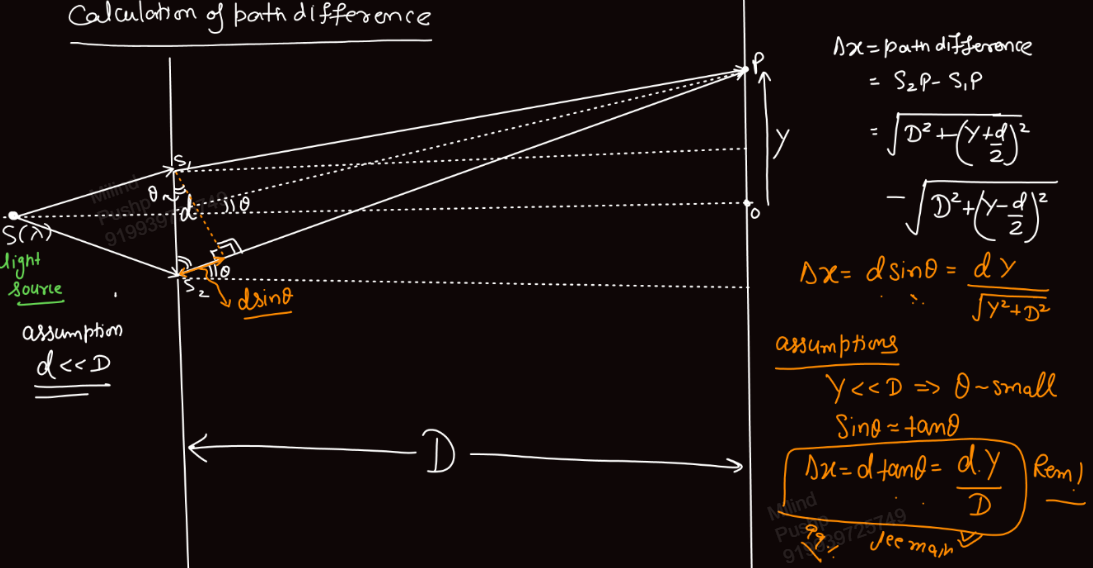 Calculation of path difference
P
Y
S₁
θ
d
θ
O
S(λ)
light
source
S₂
θ
dsinθ
assumption
d << D
D
Δx = path difference
= S₂P - S₁P
= √(D² + (Y + d/2)²)
- √(D² + (Y - d/2)²)
Δx = d sinθ = dY/√(Y² + D²)
assumptions
Y << D => θ ~ small
Sinθ ≈ tanθ
Δx = d tanθ = d.Y/D Rem!
99%
Jee main
Milind
Pushp
919939725749
Milind
Pushp
919939725749